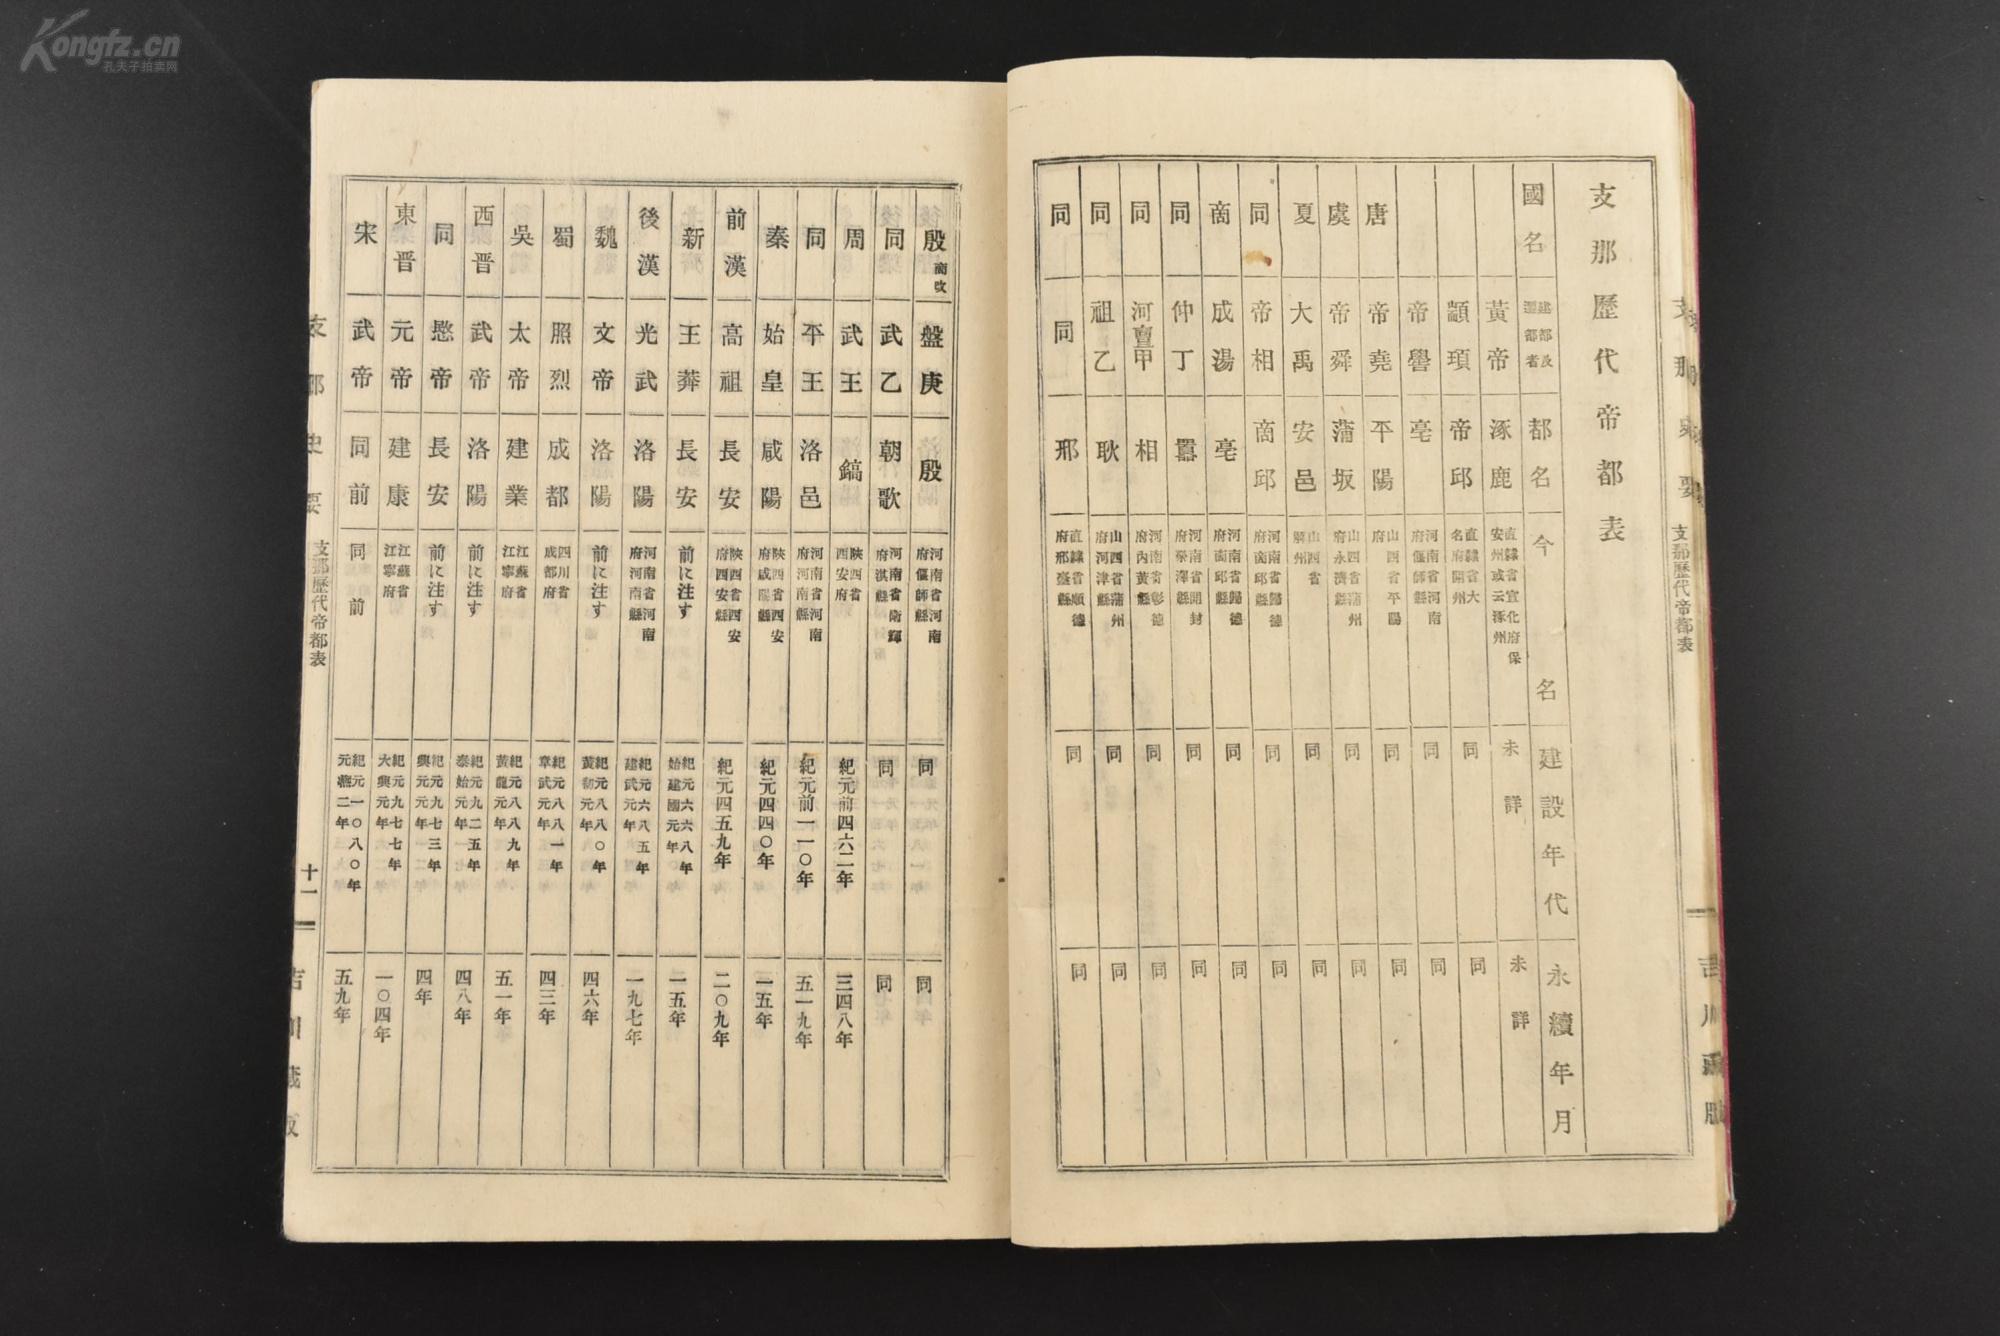 Kongfz.cn
孔夫子拍卖网
支那史要
支那歷代帝都表
吉川藏版
支那歷代帝都表
國名 建都及遷都者 都名 今名 建設年代 永續年月
黃帝 涿鹿 直隸省宣化府保安州或云涿州 未詳 未詳
顓頊 帝邱 直隸省大名府開州 同 同
帝嚳 亳 河南省河南府偃師縣 同 同
唐 帝堯 平陽 山西省平陽府 同 同
虞 帝舜 蒲坂 山西省蒲州府永濟縣 同 同
夏 大禹 安邑 山西省解州 同 同
同 帝相 商邱 河南省歸德府商邱縣 同 同
商 成湯 亳 河南省歸德府商邱縣 同 同
同 仲丁 囂 河南省開封府滎澤縣 同 同
同 河亶甲 相 河南省彰德府內黃縣 同 同
同 祖乙 耿 山西省蒲州府河津縣 同 同
同 同 邢 直隸省順德府邢臺縣 同 同
殷 商改 盤庚 殷 河南省河南府偃師縣 同 同
同 武乙 朝歌 河南省衛輝府淇縣 同 同
周 武王 鎬 陝西省西安府 紀元前四六二年 三四八年
同 平王 洛邑 河南省河南府河南縣 紀元前一一〇年 五一九年
秦 始皇 咸陽 陝西省西安府咸陽縣 紀元四四〇年 一五年
前漢 高祖 長安 陝西省西安府西安縣 紀元四五九年 二〇九年
新 王莽 長安 前に注す 紀元六六八年始建國元年 一五年
後漢 光武 洛陽 河南省河南府河南縣 紀元六八五年建武元年 一九七年
魏 文帝 洛陽 前に注す 紀元八八〇年黃初元年 四六年
蜀 照烈 成都 四川省成都府 紀元八八一年章武元年 四三年
吳 太帝 建業 江蘇省江寧府 紀元八八九年黃龍元年 五一年
西晋 武帝 洛陽 前に注す 紀元九二五年泰始元年 四八年
同 愍帝 長安 前に注す 紀元九七三年興元元年 四年
東晋 元帝 建康 江蘇省江寧府 紀元九七七年大興元年 一〇四年
宋 武帝 同前 同前 紀元一〇八〇年元熈二年 五九年
支那史要
支那歷代帝都表
十一
吉川藏版